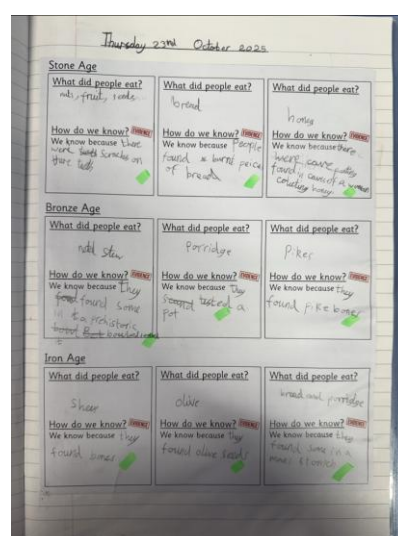 Thursday 23rd October 2025
Stone Age
What did people eat?
nuts, fruit, seeds
How do we know? EVIDENCE
We know because there
were scraches on
there
What did people eat?
bread
How do we know? EVIDENCE
We know because People
found a burnt peice
of bread
What did people eat?
honey
How do we know? EVIDENCE
We know because there
were cave
found a woman
honey
Bronze Age
What did people eat?
stew
How do we know? EVIDENCE
We know because they
found some
in a prehistoric
What did people eat?
Porridge
How do we know? EVIDENCE
We know because they
tested a
pot
What did people eat?
Pike
How do we know? EVIDENCE
We know because they
found pike bones
Iron Age
What did people eat?
How do we know? EVIDENCE
We know because they
found bones
What did people eat?
olive
How do we know? EVIDENCE
We know because they
found olive seeds
What did people eat?
bread and porridge
How do we know? EVIDENCE
We know because they
found some in a